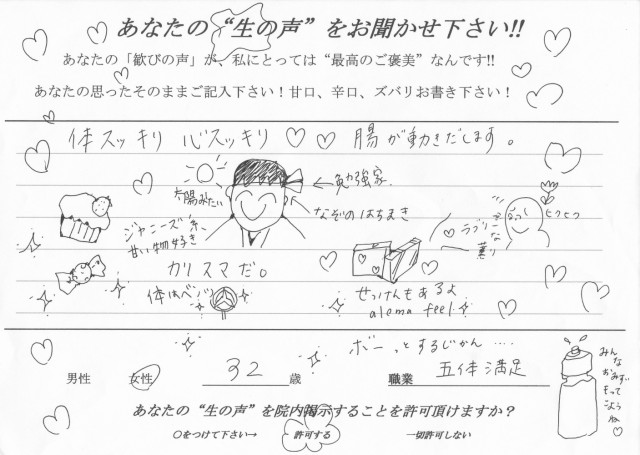 あなたの“生の声”をお聞かせ下さい!!
あなたの「歓びの声」が、私にとっては“最高のご褒美”なんです!!
あなたの思ったそのままご記入下さい！甘口、辛口、ズバリお書き下さい！
体スッキリ 心スッキリ 腸が動きだします。
太陽みたい
←勉強家
なぞのはちまき
ジャニーズ系、
甘い物好き
カリスマだ。
ラブリーな
薫り
せっけんもあるよ
alema feel
ボーっとするじかん ....
男性 女性 32 歳 職業 五体満足
みんな
おみず
もって
こよう
ね
あなたの“生の声”を院内掲示することを許可頂けますか？
○をつけて下さい→ 許可する 一切許可しない